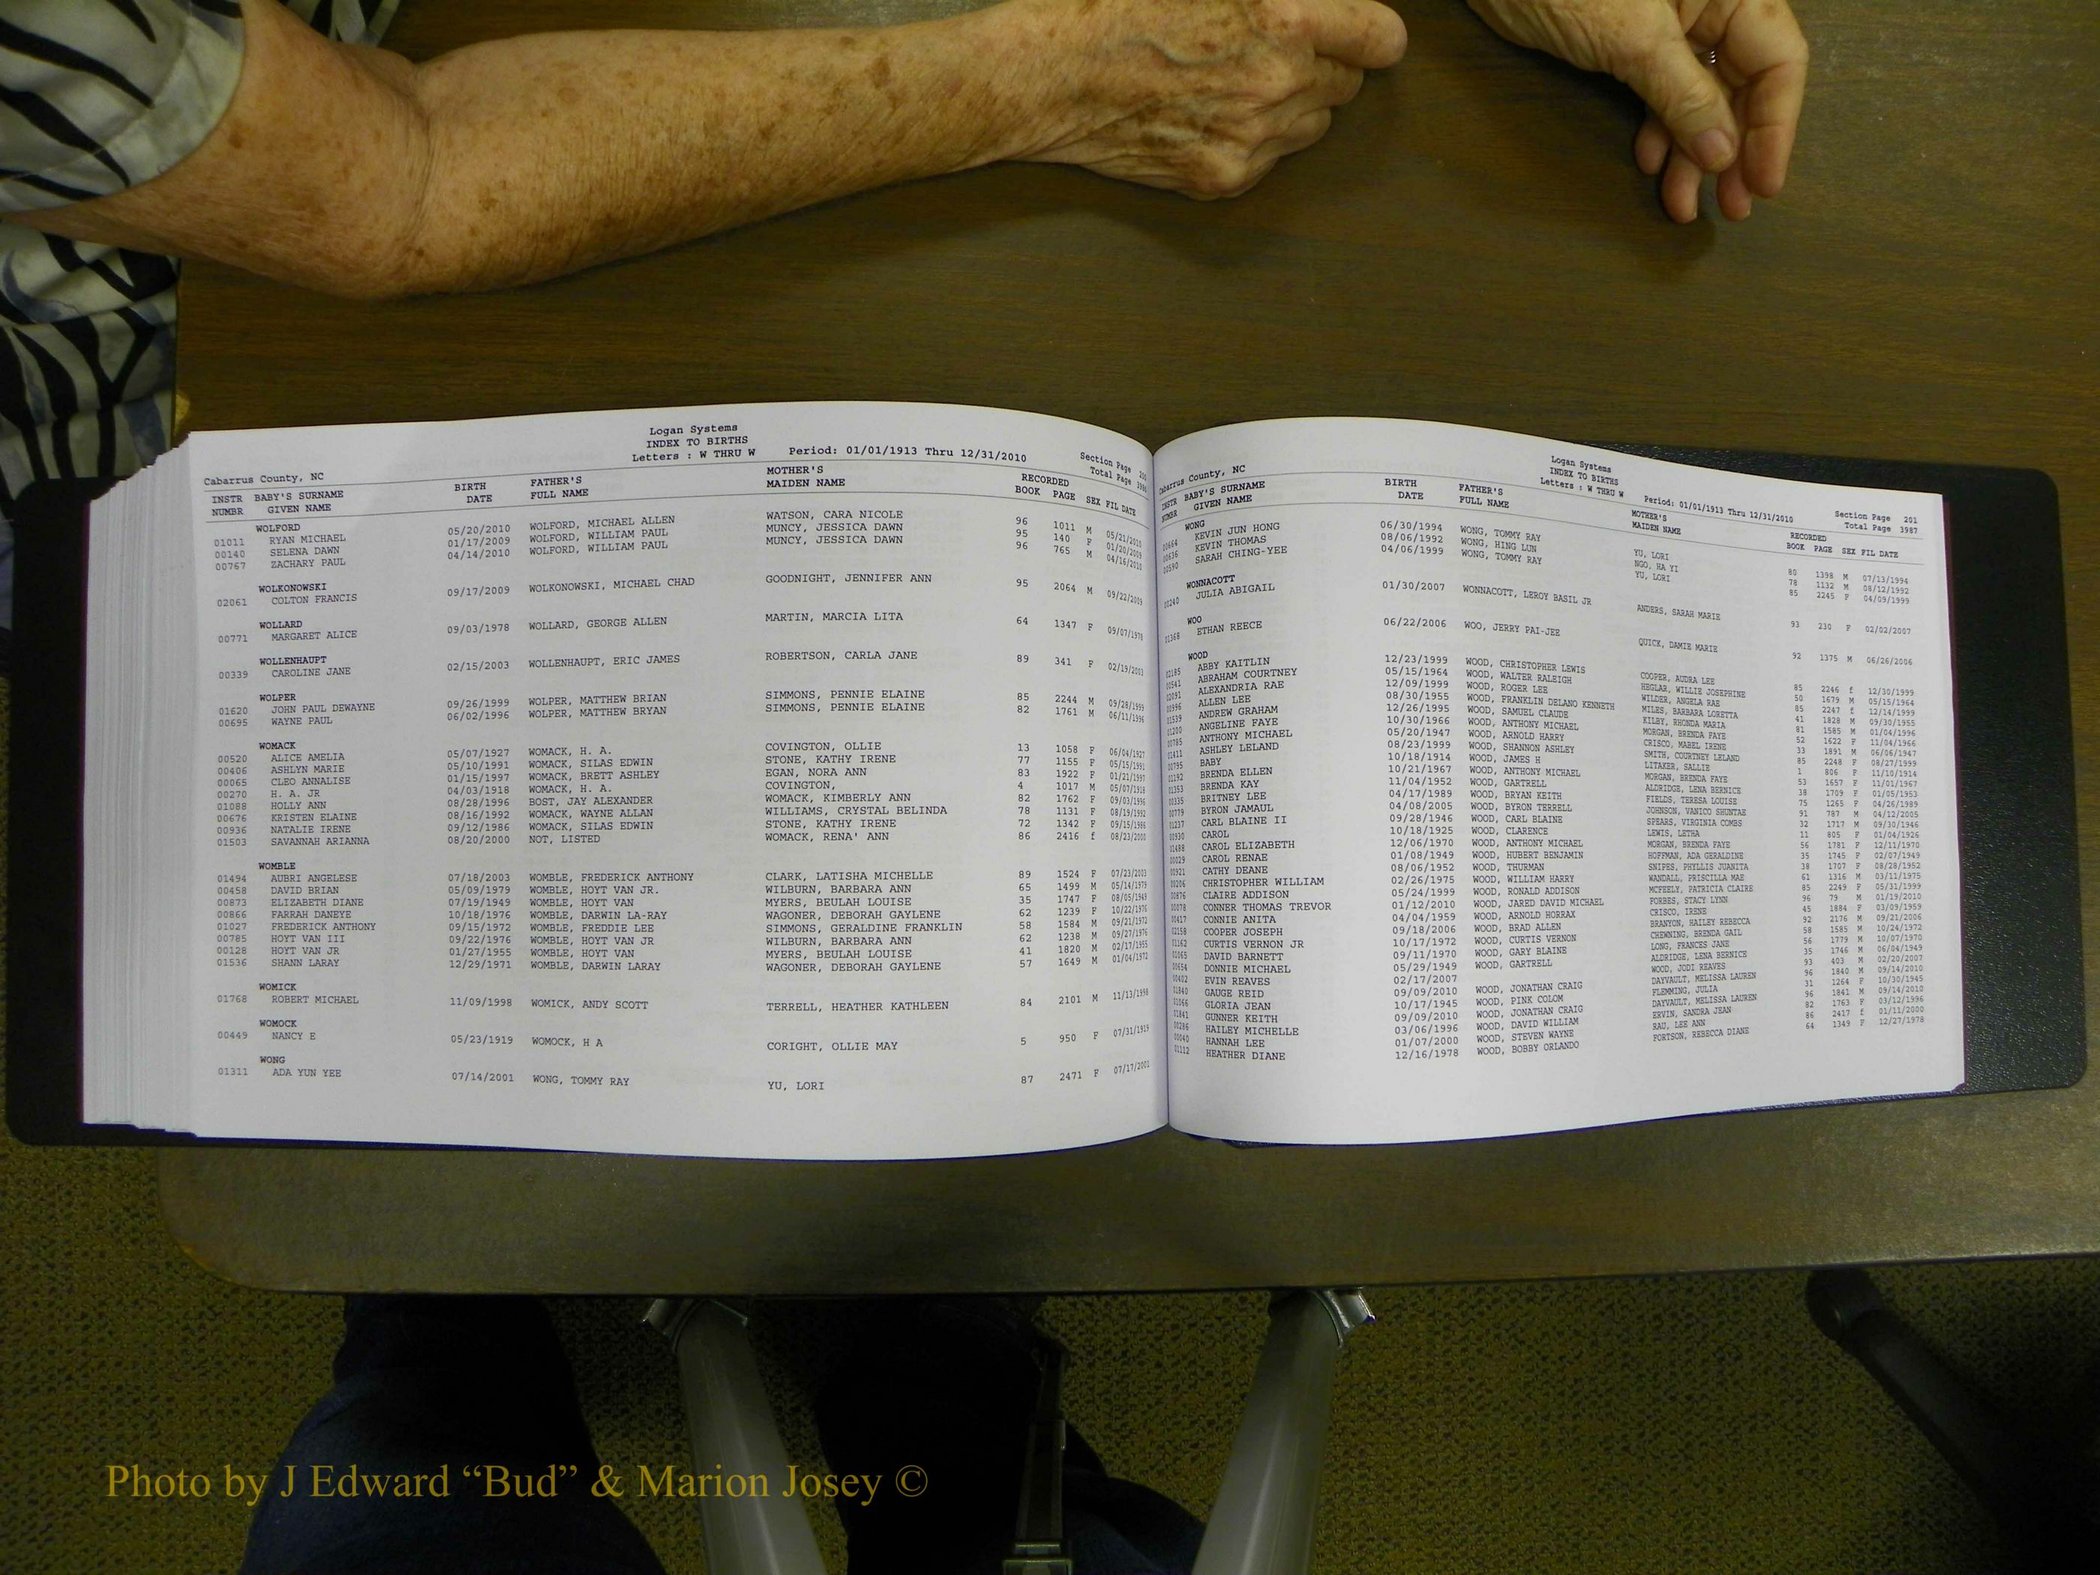 Logan Systems
INDEX TO BIRTHS
Letters : W THRU W Period: 01/01/1913 Thru 12/31/2010
Section Page 200
Total Page 3986
Cabarrus County, NC
INSTR NUMBR BABY'S SURNAME GIVEN NAME BIRTH DATE FATHER'S FULL NAME MOTHER'S MAIDEN NAME RECORDED BOOK PAGE SEX FIL DATE
WOLFORD
01011 RYAN MICHAEL 05/20/2010 WOLFORD, MICHAEL ALLEN WATSON, CARA NICOLE 96 1011 M 05/21/2010
00140 SELENA DAWN 01/17/2009 WOLFORD, WILLIAM PAUL MUNCY, JESSICA DAWN 95 140 F 01/20/2009
00767 ZACHARY PAUL 04/14/2010 WOLFORD, WILLIAM PAUL MUNCY, JESSICA DAWN 96 765 M 04/16/2010
WOLKONOWSKI
02061 COLTON FRANCIS 09/17/2009 WOLKONOWSKI, MICHAEL CHAD GOODNIGHT, JENNIFER ANN 95 2064 M 09/22/2009
WOLLARD
00771 MARGARET ALICE 09/03/1978 WOLLARD, GEORGE ALLEN MARTIN, MARCIA LITA 64 1347 F 09/07/1978
WOLLENHAUPT
00339 CAROLINE JANE 02/15/2003 WOLLENHAUPT, ERIC JAMES ROBERTSON, CARLA JANE 89 341 F 02/19/2003
WOLPER
01620 JOHN PAUL DEWAYNE 09/26/1999 WOLPER, MATTHEW BRIAN SIMMONS, PENNIE ELAINE 85 2244 M 09/28/1999
00695 WAYNE PAUL 06/02/1996 WOLPER, MATTHEW BRYAN SIMMONS, PENNIE ELAINE 82 1761 M 06/11/1996
WOMACK
00520 ALICE AMELIA 05/07/1927 WOMACK, H. A. COVINGTON, OLLIE 13 1058 F 06/04/1927
00406 ASHLYN MARIE 05/10/1991 WOMACK, SILAS EDWIN STONE, KATHY IRENE 77 1155 F 05/15/1991
00065 CLEO ANNALISE 01/15/1997 WOMACK, BRETT ASHLEY EGAN, NORA ANN 83 1922 F 01/21/1997
00270 H. A. JR 04/03/1918 WOMACK, H. A. COVINGTON, 4 1017 M 05/07/1918
01088 HOLLY ANN 08/28/1996 BOST, JAY ALEXANDER WOMACK, KIMBERLY ANN 82 1762 F 09/03/1996
00676 KRISTEN ELAINE 08/16/1992 WOMACK, WAYNE ALLAN WILLIAMS, CRYSTAL BELINDA 78 1131 F 08/19/1992
00936 NATALIE IRENE 09/12/1986 WOMACK, SILAS EDWIN STONE, KATHY IRENE 72 1342 F 09/15/1986
01503 SAVANNAH ARIANNA 08/20/2000 NOT, LISTED WOMACK, RENA' ANN 86 2416 f 08/23/2000
WOMBLE
01494 AUBRI ANGELESE 07/18/2003 WOMBLE, FREDERICK ANTHONY CLARK, LATISHA MICHELLE 89 1524 F 07/23/2003
00458 DAVID BRIAN 05/09/1979 WOMBLE, HOYT VAN JR. WILBURN, BARBARA ANN 65 1499 M 05/14/1979
00873 ELIZABETH DIANE 07/19/1949 WOMBLE, HOYT VAN MYERS, BEULAH LOUISE 35 1747 F 08/05/1949
00866 FARRAH DANEYE 10/18/1976 WOMBLE, DARWIN LA-RAY WAGONER, DEBORAH GAYLENE 62 1239 F 10/22/1976
01027 FREDERICK ANTHONY 09/15/1972 WOMBLE, FREDDIE LEE SIMMONS, GERALDINE FRANKLIN 58 1584 M 09/21/1972
00785 HOYT VAN III 09/22/1976 WOMBLE, HOYT VAN JR WILBURN, BARBARA ANN 62 1238 M 09/27/1976
00128 HOYT VAN JR 01/27/1955 WOMBLE, HOYT VAN MYERS, BEULAH LOUISE 41 1820 M 02/17/1955
01536 SHANN LARAY 12/29/1971 WOMBLE, DARWIN LARAY WAGONER, DEBORAH GAYLENE 57 1649 M 01/04/1972
WOMICK
01768 ROBERT MICHAEL 11/09/1998 WOMICK, ANDY SCOTT TERRELL, HEATHER KATHLEEN 84 2101 M 11/13/1998
WOMOCK
00449 NANCY E 05/23/1919 WOMOCK, H A CORIGHT, OLLIE MAY 5 950 F 07/31/1919
WONG
01311 ADA YUN YEE 07/14/2001 WONG, TOMMY RAY YU, LORI 87 2471 F 07/17/2001
Logan Systems
INDEX TO BIRTHS
Letters : W THRU W Period: 01/01/1913 Thru 12/31/2010
Section Page 201
Total Page 3987
Cabarrus County, NC
INSTR NUMBR BABY'S SURNAME GIVEN NAME BIRTH DATE FATHER'S FULL NAME MOTHER'S MAIDEN NAME RECORDED BOOK PAGE SEX FIL DATE
WONG
00664 KEVIN JUN HONG 06/30/1994 WONG, TOMMY RAY YU, LORI 80 1398 M 07/13/1994
00636 KEVIN THOMAS 08/06/1992 WONG, HING LUN NGO, HA YI 78 1132 M 08/12/1992
00590 SARAH CHING-YEE 04/06/1999 WONG, TOMMY RAY YU, LORI 85 2245 F 04/09/1999
WONNACOTT
00240 JULIA ABIGAIL 01/30/2007 WONNACOTT, LEROY BASIL JR ANDERS, SARAH MARIE 93 230 F 02/02/2007
WOO
01368 ETHAN REECE 06/22/2006 WOO, JERRY PAI-JEE QUICK, DAMIE MARIE 92 1375 M 06/26/2006
WOOD
02185 ABBY KAITLIN 12/23/1999 WOOD, CHRISTOPHER LEWIS COOPER, AUDRA LEE 85 2246 f 12/30/1999
00541 ABRAHAM COURTNEY 05/15/1964 WOOD, WALTER RALEIGH HEGLAR, WILLIE JOSEPHINE 50 1679 M 05/15/1964
02091 ALEXANDRIA RAE 12/09/1999 WOOD, ROGER LEE WILDER, ANGELA RAE 85 2247 f 12/14/1999
00996 ALLEN LEE 08/30/1955 WOOD, FRANKLIN DELANO KENNETH MILES, BARBARA LORETTA 41 1828 M 09/30/1955
01539 ANDREW GRAHAM 12/26/1995 WOOD, SAMUEL CLAUDE KILBY, RHONDA MARIA 81 1585 M 01/04/1996
01200 ANGELINE FAYE 10/30/1966 WOOD, ANTHONY MICHAEL MORGAN, BRENDA FAYE 52 1622 F 11/04/1966
00785 ANTHONY MICHAEL 05/20/1947 WOOD, ARNOLD HARRY CRISCO, MABEL IRENE 33 1891 M 06/06/1947
01411 ASHLEY LELAND 08/23/1999 WOOD, SHANNON ASHLEY SMITH, COURTNEY LELAND 85 2248 F 08/27/1999
00795 BABY 10/18/1914 WOOD, JAMES H LITAKER, SALLIE 1 806 F 11/10/1914
01192 BRENDA ELLEN 10/21/1967 WOOD, ANTHONY MICHAEL MORGAN, BRENDA FAYE 53 1657 F 11/01/1967
01353 BRENDA KAY 11/04/1952 WOOD, GARTRELL ALDRIDGE, LENA BERNICE 38 1709 F 01/05/1953
00335 BRITNEY LEE 04/17/1989 WOOD, BRYAN KEITH FIELDS, TERESA LOUISE 75 1265 F 04/26/1989
00779 BYRON JAMAUL 04/08/2005 WOOD, BYRON TERRELL JOHNSON, VANICO SHUNTAE 91 787 M 04/12/2005
01237 CARL BLAINE II 09/28/1946 WOOD, CARL BLAINE SPEARS, VIRGINIA COMBS 32 1717 M 09/30/1946
00930 CAROL 10/18/1925 WOOD, CLARENCE LEWIS, LETHA 11 805 F 01/04/1926
01488 CAROL ELIZABETH 12/06/1970 WOOD, ANTHONY MICHAEL MORGAN, BRENDA FAYE 56 1781 F 12/11/1970
00029 CAROL RENAE 01/08/1949 WOOD, HUBERT BENJAMIN HOFFMAN, ADA GERALDINE 35 1745 F 02/07/1949
00921 CATHY DEANE 08/06/1952 WOOD, THURMAN SNIPES, PHYLLIS JUANITA 38 1707 F 08/28/1952
00206 CHRISTOPHER WILLIAM 02/26/1975 WOOD, WILLIAM HARRY WANDALL, PRISCILLA MAE 61 1316 M 03/11/1975
00876 CLAIRE ADDISON 05/24/1999 WOOD, RONALD ADDISON MCFEELY, PATRICIA CLAIRE 85 2249 F 05/31/1999
00078 CONNER THOMAS TREVOR 01/12/2010 WOOD, JARED DAVID MICHAEL FORBES, STACY LYNN 96 79 M 01/19/2010
00417 CONNIE ANITA 04/04/1959 WOOD, ARNOLD HORRAX CRISCO, IRENE 45 1884 F 03/09/1959
02158 COOPER JOSEPH 09/18/2006 WOOD, BRAD ALLEN BRANYON, HAILEY REBECCA 92 2176 M 09/21/2006
01162 CURTIS VERNON JR 10/17/1972 WOOD, CURTIS VERNON CHEWNING, BRENDA GAIL 58 1585 M 10/24/1972
01065 DAVID BARNETT 09/11/1970 WOOD, GARY BLAINE LONG, FRANCES JANE 56 1779 M 10/07/1970
00654 DONNIE MICHAEL 05/29/1949 WOOD, GARTRELL ALDRIDGE, LENA BERNICE 35 1746 M 06/04/1949
00402 EVIN REAVES 02/17/2007 WOOD, JODI REAVES 93 403 M 02/20/2007
01840 GAUGE REID 09/09/2010 WOOD, JONATHAN CRAIG DAYVAULT, MELISSA LAUREN 96 1840 M 09/14/2010
01066 GLORIA JEAN 10/17/1945 WOOD, PINK COLOM FLEMMING, JULIA 31 1264 F 10/30/1945
01841 GUNNER KEITH 09/09/2010 WOOD, JONATHAN CRAIG DAYVAULT, MELISSA LAUREN 96 1841 M 09/14/2010
00286 HAILEY MICHELLE 03/06/1996 WOOD, DAVID WILLIAM ERVIN, SANDRA JEAN 82 1763 F 03/12/1996
00040 HANNAH LEE 01/07/2000 WOOD, STEVEN WAYNE RAU, LEE ANN 86 2417 f 01/11/2000
01112 HEATHER DIANE 12/16/1978 WOOD, BOBBY ORLANDO FORTSON, REBECCA DIANE 64 1349 F 12/27/1978
Photo by J Edward “Bud” & Marion Josey ©